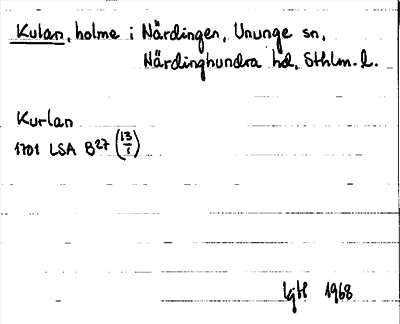 Kulan, holme i Närdingen, Ununge sn,
Närdinghundra hd, Sthlm. l.
Kurlan
1701 LSA B27 (13/1)
1968